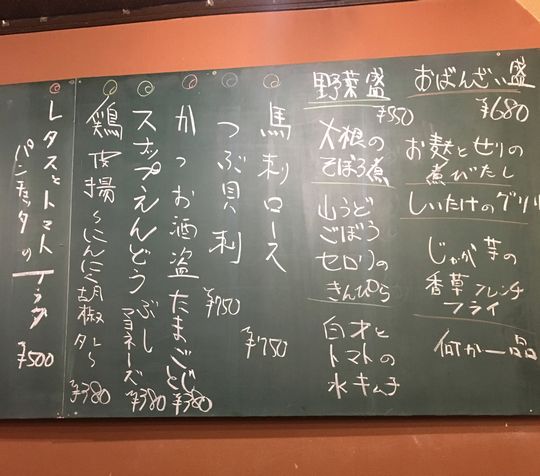 おばんざい盛
¥680
お麩とせりの
煮びたし
しいたけのグリル
じゃが芋の
香草フレンチ
フライ
何か一品
野菜盛
¥550
大根の
そぼろ煮
山うど
ごぼう
セロリの
きんぴら
白才と
トマトの
水キムチ
馬刺ロース
¥750
つぶ貝刺
¥750
かつお酒盗たまごとじ
¥380
スナップえんどう
ぶし
マヨネーズ
¥380
鶏皮揚〜にんにく胡椒タレ〜
¥380
レタスとトマト
パンチェッタの
¥500